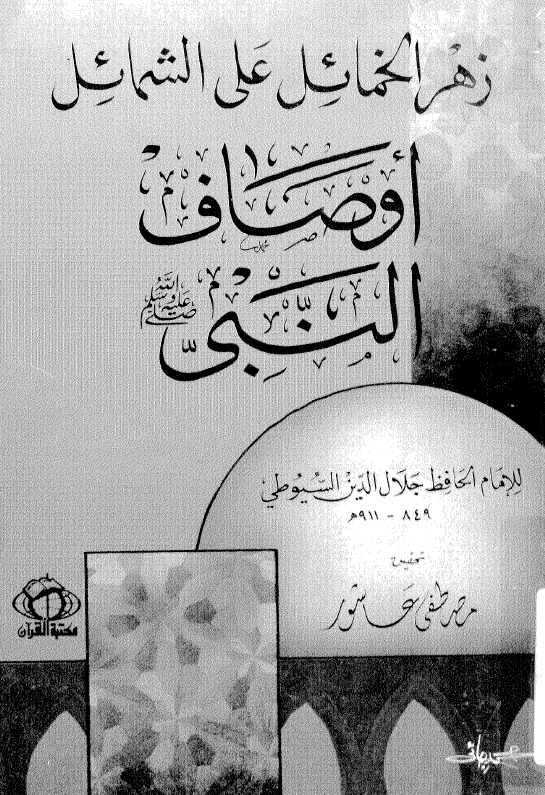 زَهْر الخمائِل عَلى الشمائِل
أوصَاف
النَّبِيّ ﷺ
للإمام الحافظ جَلال الدّين السّيُوطي
٨٤٩ - ٩١١ھ
تحقيق
مصطفى عاشور
مكتبة القرآن